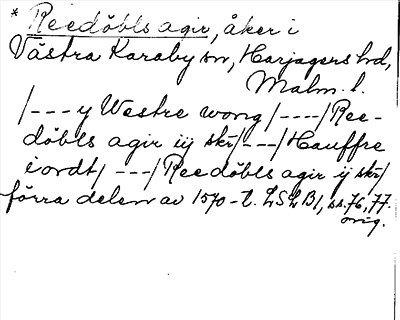 * Reedöbls agir, åker i
Västra Karaby sn, Harjagers hd,
Malm. l.
/---y Westre wong/----/Ree-
döbls agir iij skr/---/Hauffre
i ordt/---/Reedöbls agir ij skr/
förra delen av 1570-t. LSLB1, ss. 76, 77.
orig.